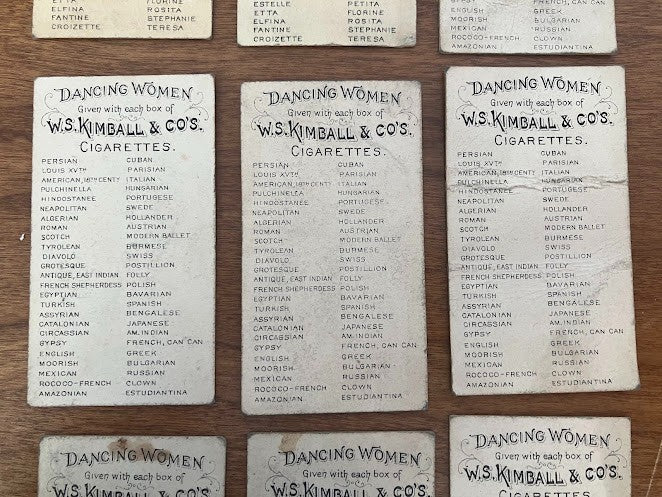 ETTA FLORINE
ELFINA ROSITA
FANTINE STEPHANIE
CROIZETTE TERESA
ESTELLE PETITA
ETTA FLORINE
ELFINA ROSITA
FANTINE STEPHANIE
CROIZETTE TERESA
GYPSY FRENCH, CAN CAN
ENGLISH GREEK
MOORISH BULGARIAN
MEXICAN RUSSIAN
ROCOCO-FRENCH CLOWN
AMAZONIAN ESTUDIANTINA
DANCING WOMEN
Given with each box of
W.S. KIMBALL & CO'S.
CIGARETTES.
PERSIAN CUBAN
LOUIS XVTH PARISIAN
AMERICAN, 18TH CENTY ITALIAN
PULCHINELLA HUNGARIAN
HINDOSTANEE PORTUGESE
NEAPOLITAN SWEDE
ALGERIAN HOLLANDER
ROMAN AUSTRIAN
SCOTCH MODERN BALLET
TYROLEAN BURMESE
DIAVOLO SWISS
GROTESQUE POSTILLION
ANTIQUE, EAST INDIAN FOLLY
FRENCH SHEPHERDESS POLISH
EGYPTIAN BAVARIAN
TURKISH SPANISH
ASSYRIAN BENGALESE
CATALONIAN JAPANESE
CIRCASSIAN AM. INDIAN
GYPSY FRENCH, CAN CAN
ENGLISH GREEK
MOORISH BULGARIAN
MEXICAN RUSSIAN
ROCOCO-FRENCH CLOWN
AMAZONIAN ESTUDIANTINA
DANCING WOMEN
Given with each box of
W.S. KIMBALL & CO'S.
CIGARETTES.
PERSIAN CUBAN
LOUIS XVTH PARISIAN
AMERICAN, 18TH CENTY ITALIAN
PULCHINELLA HUNGARIAN
HINDOSTANEE PORTUGESE
NEAPOLITAN SWEDE
ALGERIAN HOLLANDER
ROMAN AUSTRIAN
SCOTCH MODERN BALLET
TYROLEAN BURMESE
DIAVOLO SWISS
GROTESQUE POSTILLION
ANTIQUE, EAST INDIAN FOLLY
FRENCH SHEPHERDESS POLISH
EGYPTIAN BAVARIAN
TURKISH SPANISH
ASSYRIAN BENGALESE
CATALONIAN JAPANESE
CIRCASSIAN AM. INDIAN
GYPSY FRENCH, CAN CAN
ENGLISH GREEK
MOORISH BULGARIAN
MEXICAN RUSSIAN
ROCOCO-FRENCH CLOWN
AMAZONIAN ESTUDIANTINA
DANCING WOMEN
Given with each box of
W.S. KIMBALL & CO'S.
CIGARETTES.
PERSIAN CUBAN
LOUIS XVTH PARISIAN
AMERICAN, 18TH CENTY ITALIAN
PULCHINELLA HUNGARIAN
HINDOSTANEE PORTUGESE
NEAPOLITAN SWEDE
ALGERIAN HOLLANDER
ROMAN AUSTRIAN
SCOTCH MODERN BALLET
TYROLEAN BURMESE
DIAVOLO SWISS
GROTESQUE POSTILLION
ANTIQUE, EAST INDIAN FOLLY
FRENCH SHEPHERDESS POLISH
EGYPTIAN BAVARIAN
TURKISH SPANISH
ASSYRIAN BENGALESE
CATALONIAN JAPANESE
CIRCASSIAN AM. INDIAN
GYPSY FRENCH, CAN CAN
ENGLISH GREEK
MOORISH BULGARIAN
MEXICAN RUSSIAN
ROCOCO-FRENCH CLOWN
AMAZONIAN ESTUDIANTINA
DANCING WOMEN
Given with each box of
W.S. KIMBALL & CO'S.
DANCING WOMEN
Given with each box of
W.S. KIMBALL & CO'S.
DANCING WOMEN
Given with each box of
W.S. KIMBALL & CO'S.
CIGARETTES.